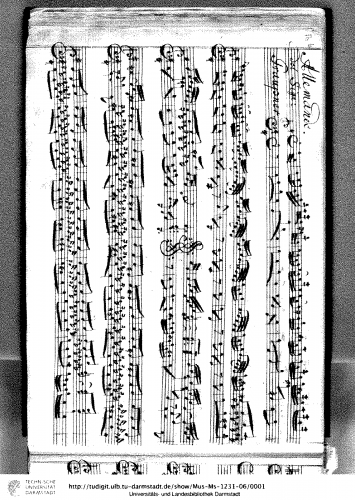 Allemande.
TECHNISCHE
UNIVERSITÄT
DARMSTADT
http://tudigit.ulb.tu-darmstadt.de/show/Mus-Ms-1231-06/0001
Universitäts- und Landesbibliothek Darmstadt